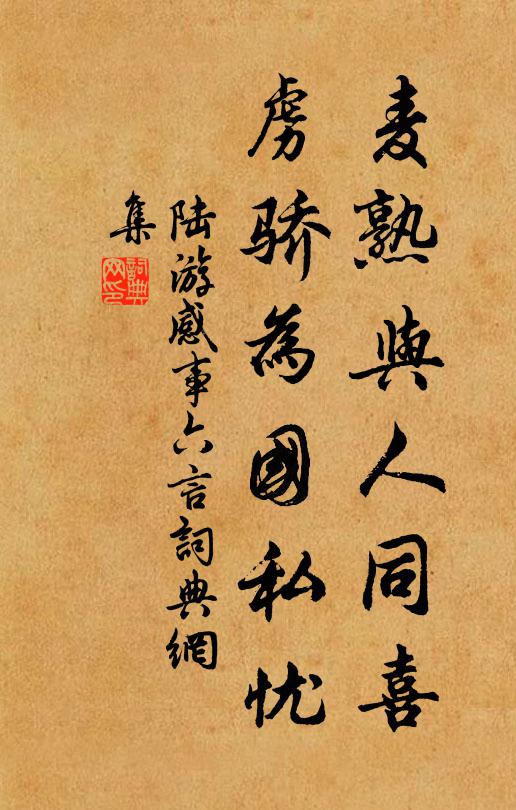 麦熟與人同喜
虏骄為國私忧
陆游感事六言詞典網
集
詞典
网印